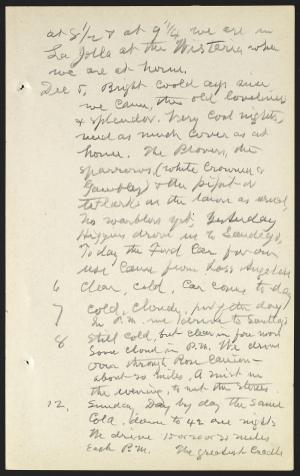 at 8 1/2 & at 9 1/4 we are in
La Jolla at the Wisteria where
we are at home.
Dec 5, Bright cool days since
we came, the old loveliness
& splendor. Very cool nights,
need as much cover as at
home. The Plovers, the
sparrows, (white Crowned &
Gambles) & the pipit or
titlark in the lawn as usual,
no warblers yet; Yesterday
Higgins drove us to San Diego,
To day the Ford Car for our
use Came from Los Angeles
6 Clear, cold, Car came to day
7 Cold, cloudy, part of the day,
In P.M. we drive to San Diego
8 Still cold, but clear in fore noon
Some cloud in P.M. We drove
over through Rose Canion -
about 20 miles, A mist in
the evening, to wet the streets.
12, Sunday, Day by day the same
Cold, down to 42 at night
We drive 15 or 20 or 25 miles
Each P.M. The greatest